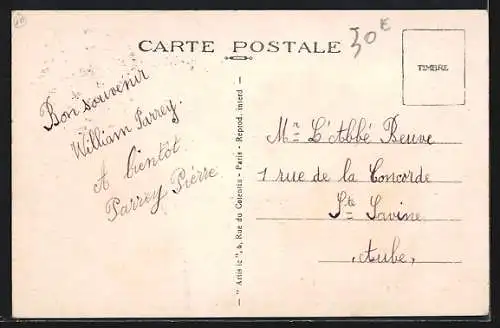 CARTE POSTALE
30€
TIMBRE
Bon souvenir
William Parrey.
A bientôt
Parrey Pierre
"Artistic", 4, Rue du Cotentin - Paris - Reprod. interd
Mr L'Abbé Beuve
1 rue de la Concorde
Ste Savine
Aube,